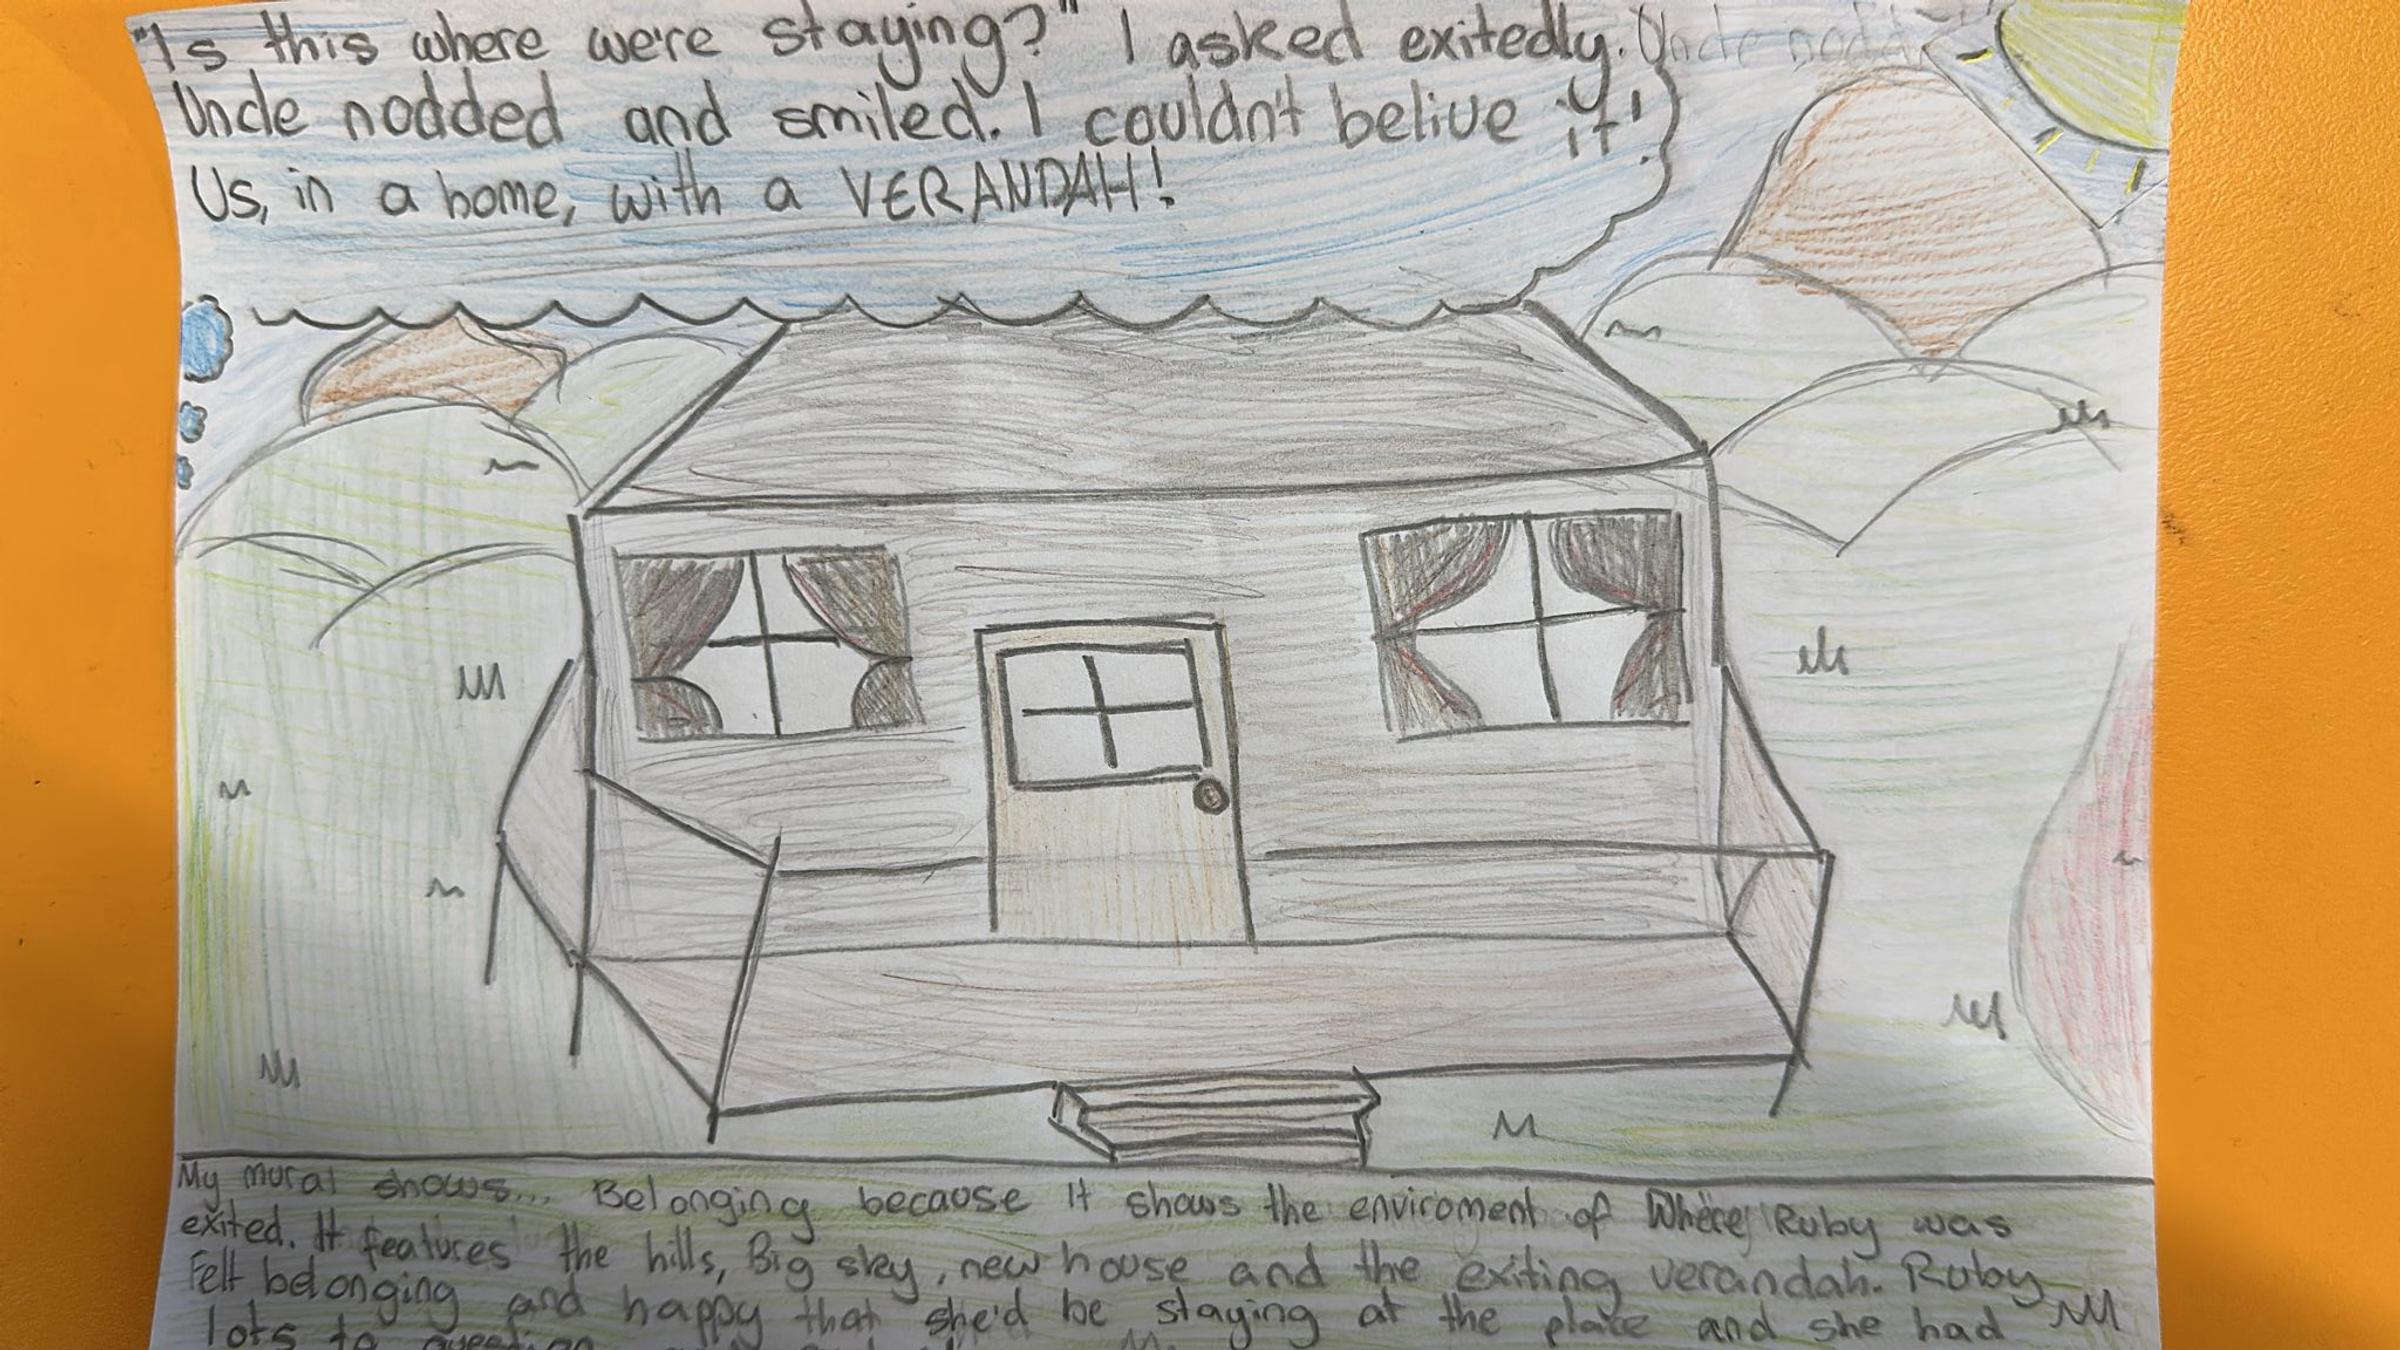 "Is this where we're staying?" I asked exitedly. Uncle nodd
Uncle nodded and smiled. I couldn't belive it!
Us, in a home, with a VERANDAH!
My mural shows... Belonging because it shows the enviroment of Where Ruby was
exited. It features the hills, Big sky, new house and the exiting verandah. Ruby
Felt belonging and happy that she'd be staying at the place and she had
lots to question